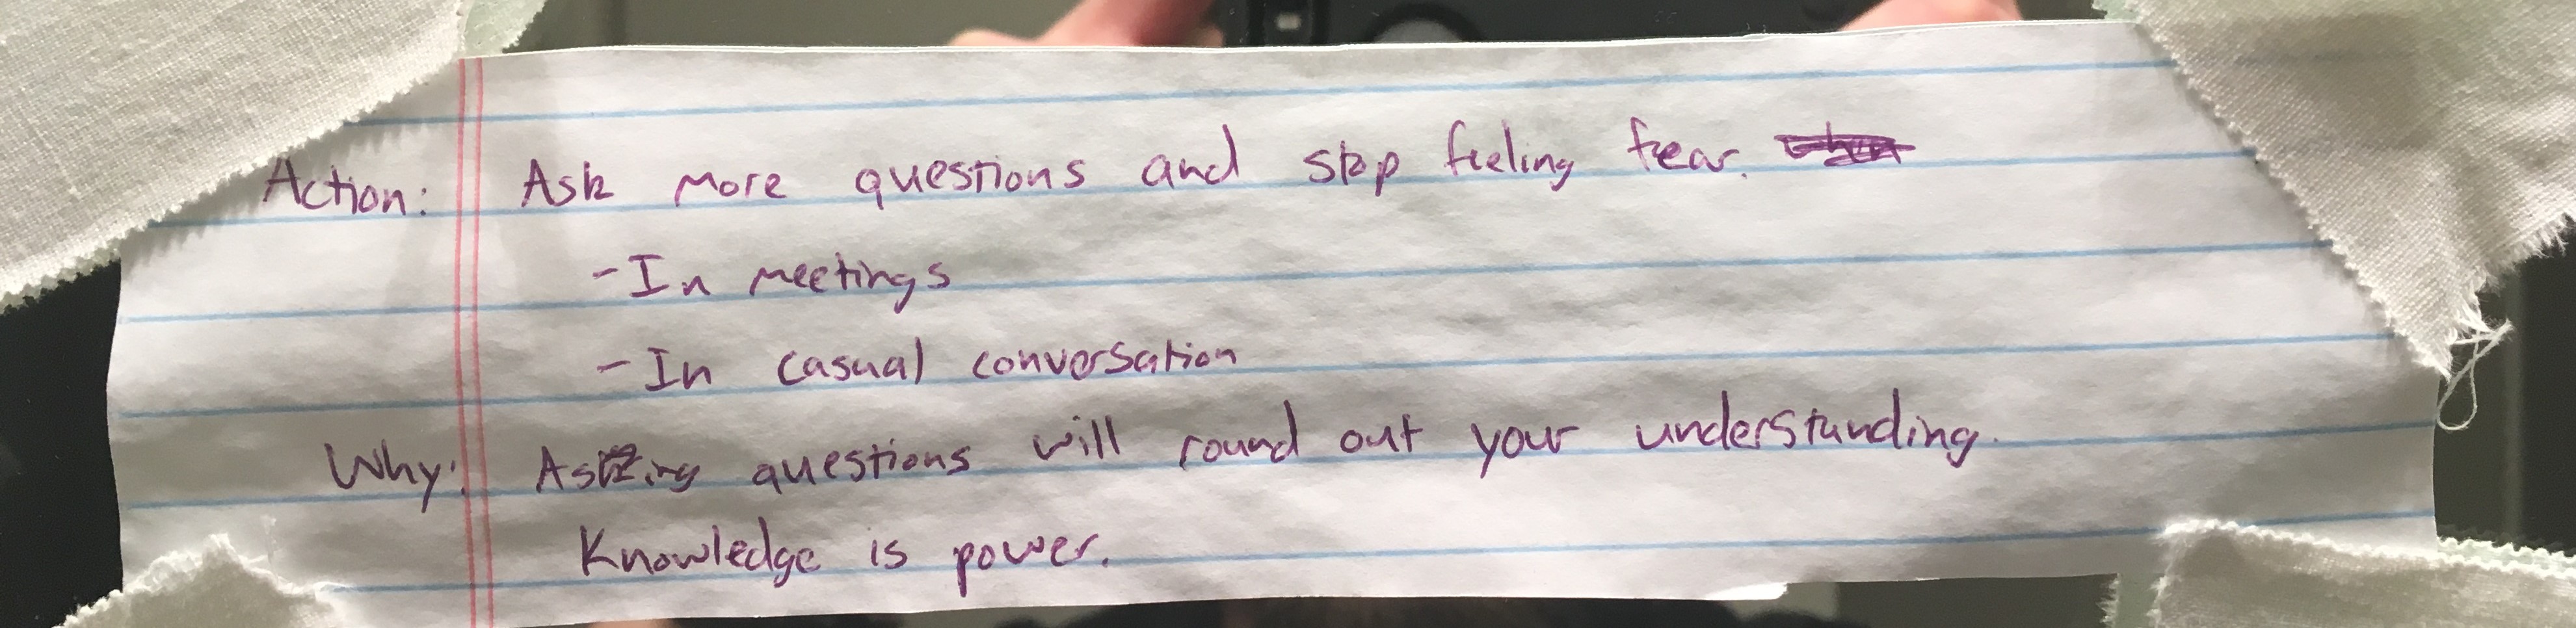 Action: Ask more questions and stop feeling fear.
-In meetings
-In casual conversation
Why: Asking questions will round out your understanding.
Knowledge is power.